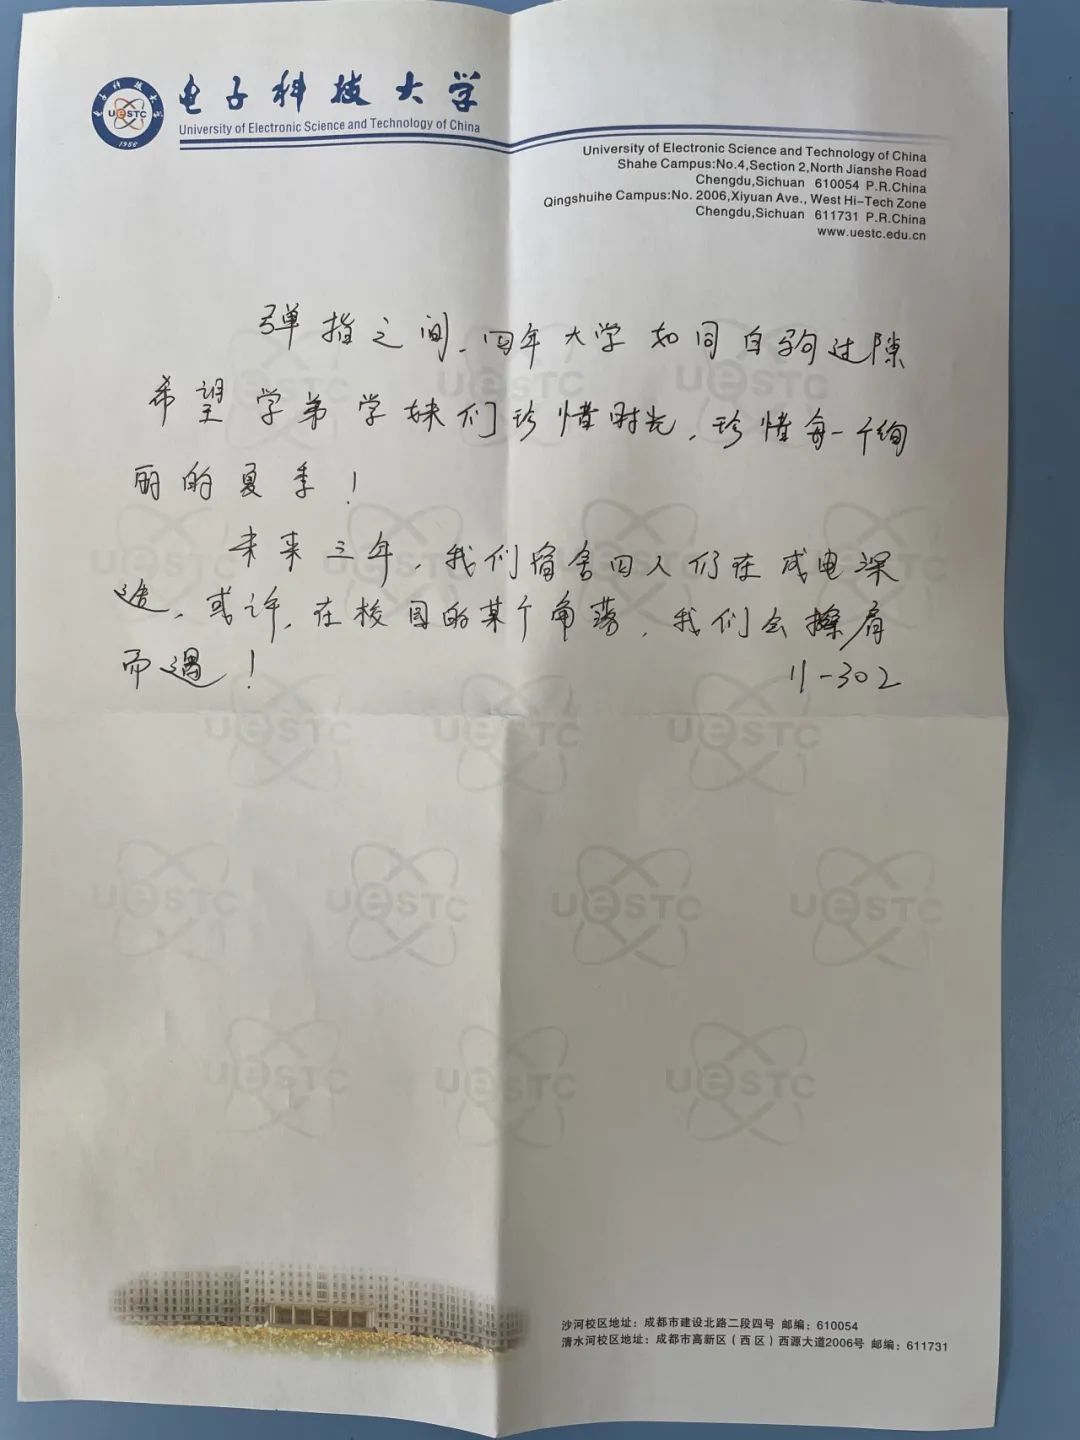 电子科技大学
University of Electronic Science and Technology of China
University of Electronic Science and Technology of China
Shahe Campus:No.4,Section 2,North Jianshe Road
Chengdu,Sichuan 610054 P.R.China
Qingshuihe Campus:No. 2006,Xiyuan Ave., West Hi-Tech Zone
Chengdu,Sichuan 611731 P.R.China
www.uestc.edu.cn
弹指之间、四年大学如同白驹过隙
希望学弟学妹们珍惜时光，珍惜每一个绚
丽的夏季！
未来三年，我们宿舍四人仍在成电深
造，或许，在校园的某个角落，我们会擦肩
而遇！
11-302
UESTC
1956
沙河校区地址：成都市建设北路二段四号 邮编：610054
清水河校区地址：成都市高新区（西区）西源大道2006号 邮编：611731